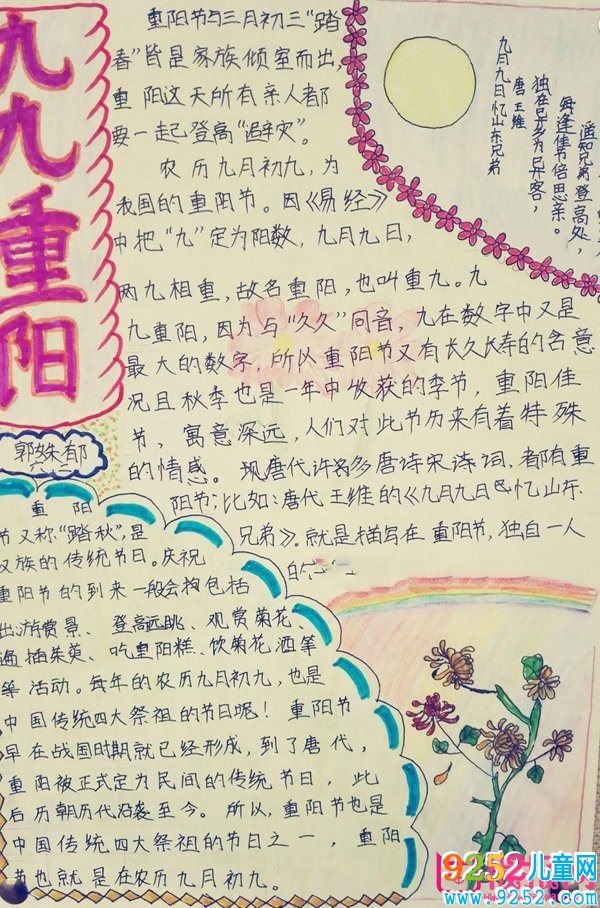 九九重阳
重阳节与三月初三“踏
春”皆是家族倾室而出，
重阳这天所有亲人都
要一起登高“避灾”。
农历九月初九，为
我国的重阳节。因《易经》
中把“九”定为阳数，九月九日，
两九相重，故名重阳，也叫重九。九
九重阳，因为与“久久”同音，九在数字中又是
最大的数字，所以重阳节又有长久长寿的含意
况且秋季也是一年中收获的季节，重阳佳
节，寓意深远，人们对此节历来有着特殊
的情感。现唐代许多唐诗宋诗词，都有重
阳节；比如：唐代王维的《九月九日忆山东
兄弟》。就是描写在重阳节，独自一人
的
九月九日忆山东兄弟
唐 王维
独在异乡为异客，
每逢佳节倍思亲。
遥知兄弟登高处，
郭姝郁
六二
重阳
节又称“踏秋”，是
汉族的传统节日。庆祝
重阳节的到来一般会构包括
出游赏景、登高远眺、观赏菊花、
遍插茱萸、吃重阳糕、饮菊花酒等
等活动。每年的农历九月初九，也是
中国传统四大祭祖的节日呢！重阳节
早在战国时期就已经形成，到了唐代，
重阳被正式定为民间的传统节日，此
后历朝历代沿袭至今。所以，重阳节也是
中国传统四大祭祖的节日之一，重阳
节也就是在农历九月初九。
9252儿童网
www.9252.com